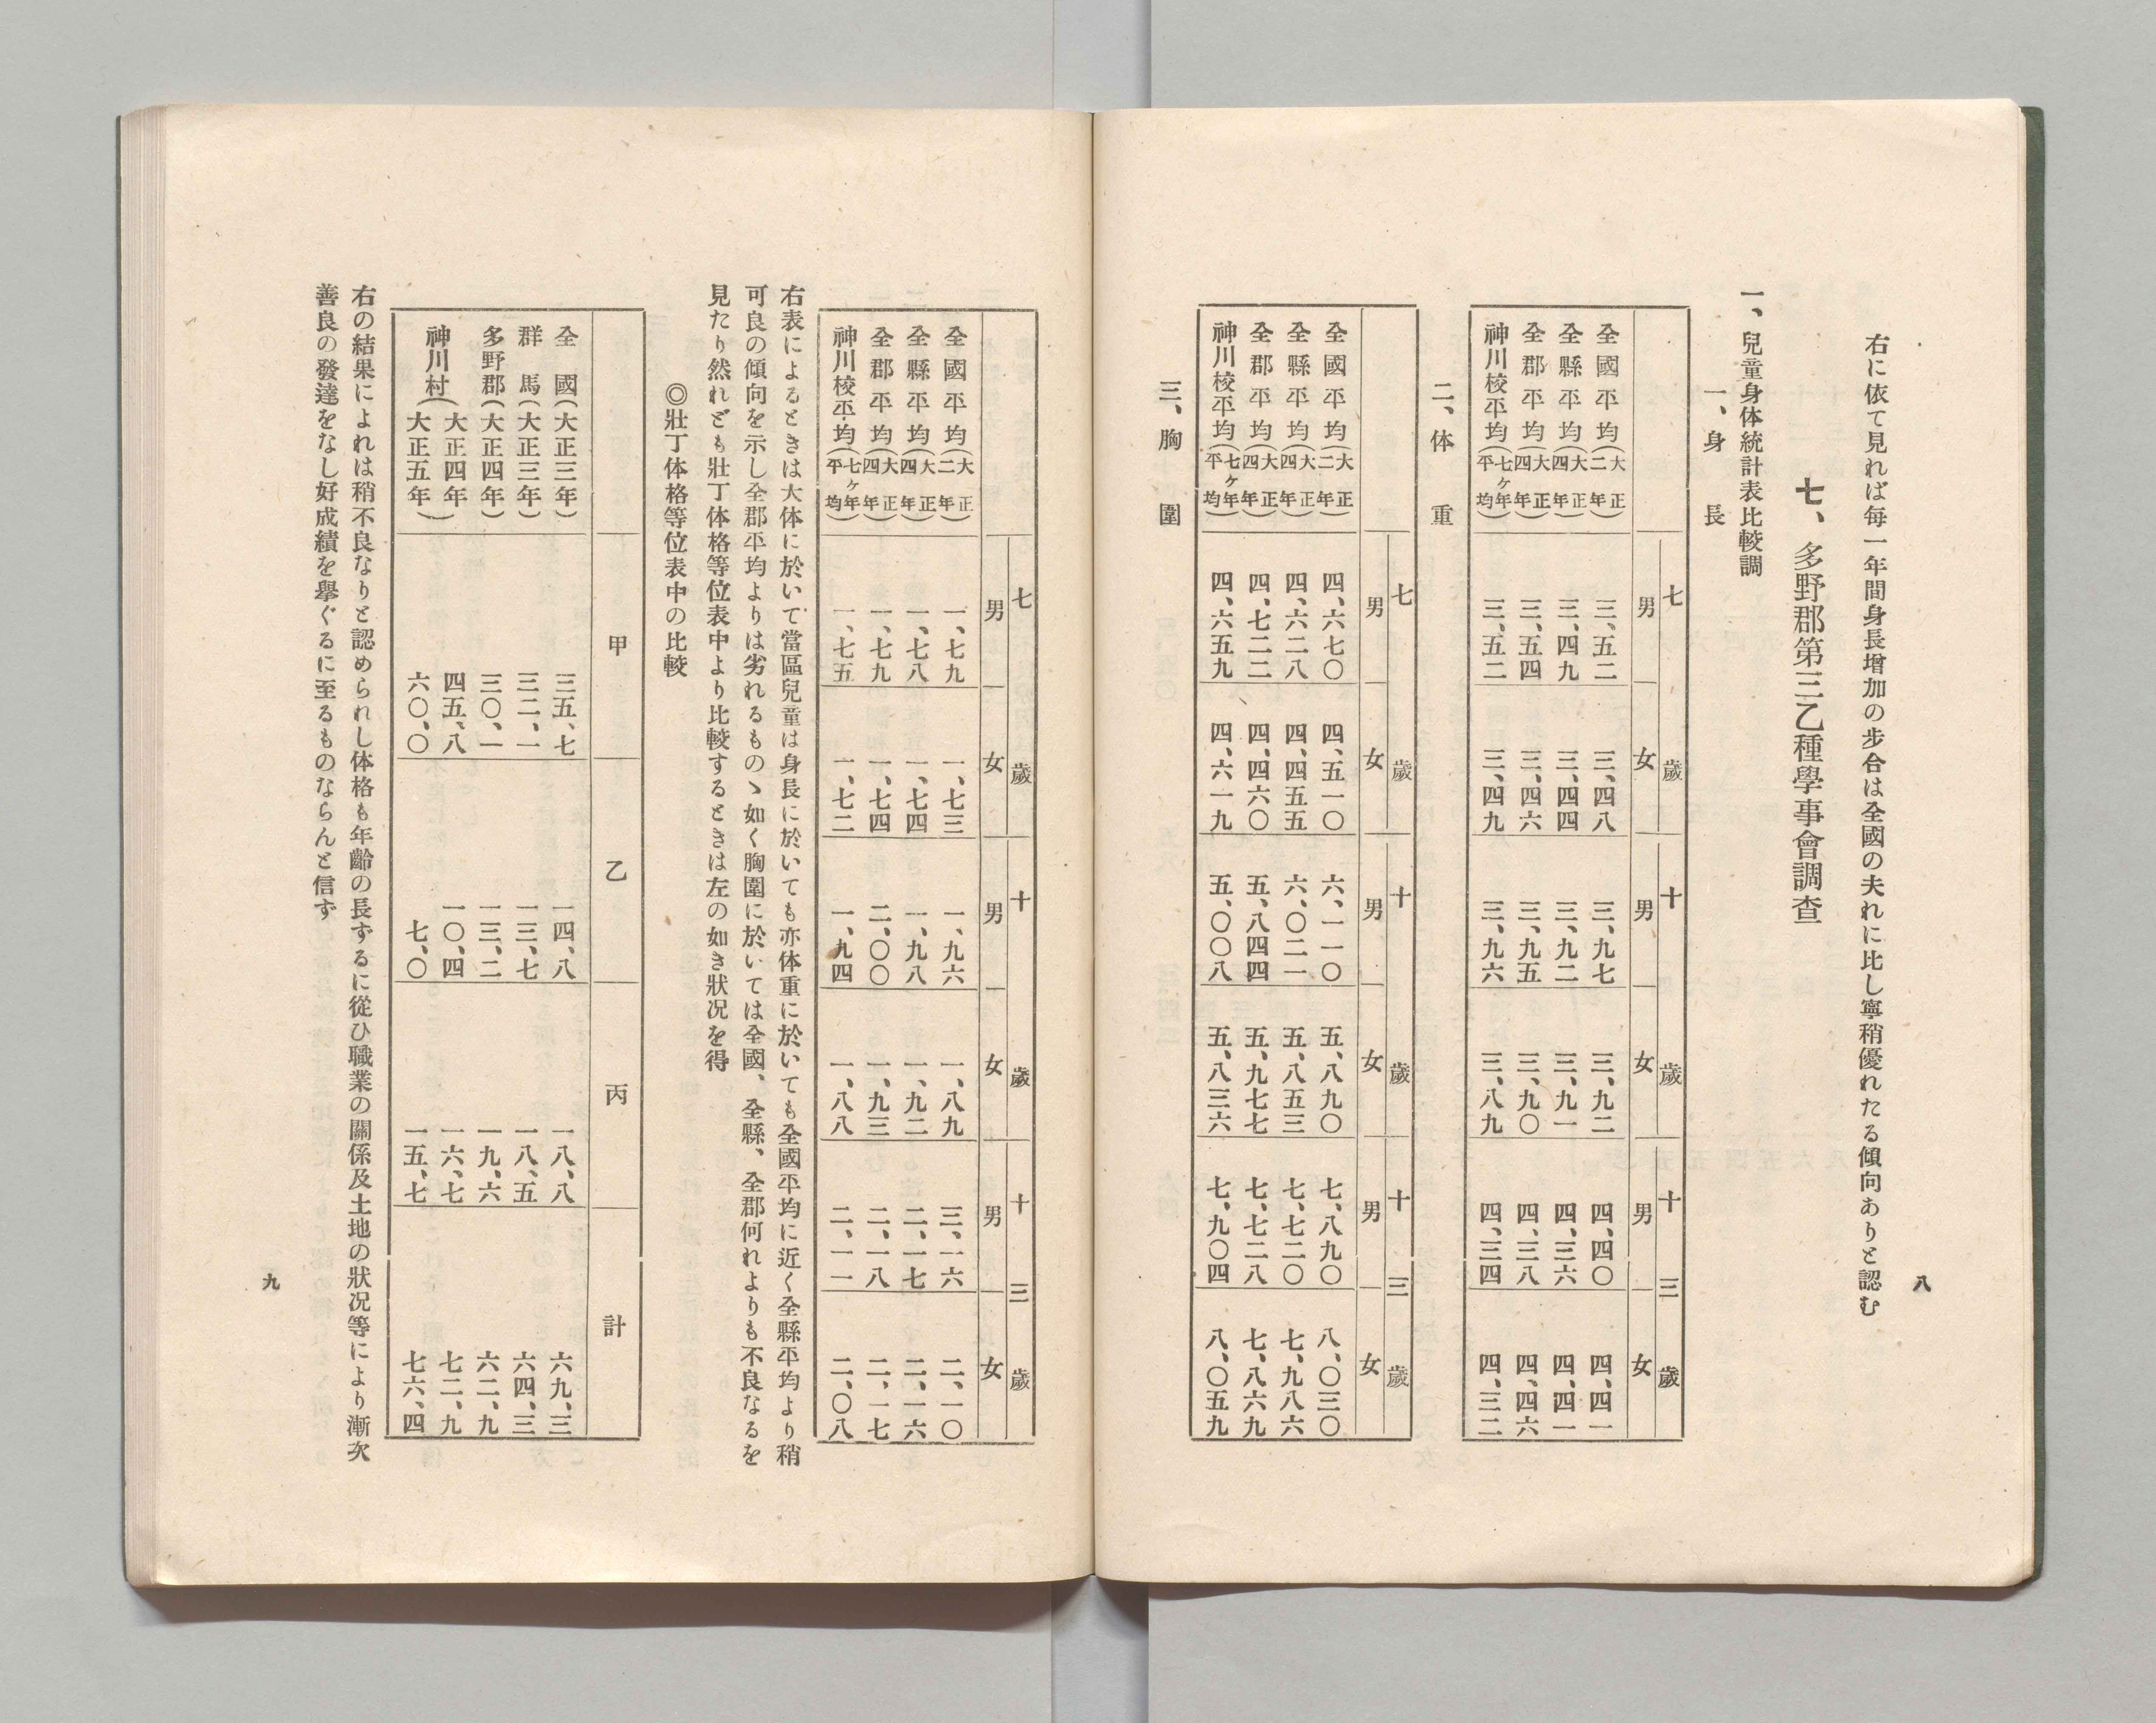 八
右に依て見れば毎一年間身長増加の步合は全國の夫れに比し寧稍優れたる傾向ありと認む
七、多野郡第三乙種學事會調查
一、兒童身体統計表比較調
一、身長
七歲 十歲 十三歲
男 女 男 女 男 女
全國平均(大正二年) 三、五二 三、四八 三、九七 三、九二 四、四〇 四、四一
全縣平均(大正四年) 三、四九 三、四四 三、九二 三、九一 四、三六 四、四一
全郡平均(大正四年) 三、五四 三、四六 三、九五 三、九〇 四、三八 四、四六
神川校平均(七ヶ年平均) 三、五二 三、四九 三、九六 三、八九 四、三四 四、三二
二、体重
七歲 十歲 十三歲
男 女 男 女 男 女
全國平均(大正二年) 四、六七〇 四、五一〇 六、一一〇 五、八九〇 七、八九〇 八、〇三〇
全縣平均(大正四年) 四、六二八 四、四五五 六、〇二一 五、八五三 七、七二〇 七、九八六
全郡平均(大正四年) 四、七二二 四、四六〇 五、八四四 五、九七七 七、七二八 七、八六九
神川校平均(七ヶ年平均) 四、六五九 四、六一九 五、〇〇八 五、八三六 七、九〇四 八、〇五九
三、胸圍
七歲 十歲 十三歲
男 女 男 女 男 女
全國平均(大正二年) 一、七九 一、七三 一、九六 一、八九 三、一六 二、一〇
全縣平均(大正四年) 一、七八 一、七四 一、九八 一、九二 二、一七 二、一六
全郡平均(大正四年) 一、七九 一、七四 二、〇〇 一、九三 二、一八 二、一七
神川校平均(七ヶ年平均) 一、七五 一、七二 一、九四 一、八八 二、一一 二、〇八
右表によるときは大体に於いて當區兒童は身長に於いても亦体重に於いても全國平均に近く全縣平均より稍
可良の傾向を示し全郡平均よりは劣れるものゝ如く胸圍に於いては全國、全縣、全郡何れよりも不良なるを
見たり然れども壯丁体格等位表中より比較するときは左の如き狀況を得
◎壯丁体格等位表中の比較
甲 乙 丙 計
全國(大正三年) 三五、七 一四、八 一八、八 六九、三
群馬(大正三年) 三二、一 一三、七 一八、五 六四、三
多野郡(大正四年) 三〇、一 一三、二 一九、六 六二、九
神川村(大正四年 四五、八 一〇、四 一六、七 七二、九
大正五年) 六〇、〇 七、〇 一五、七 七六、四
右の結果によれは稍不良なりと認められし体格も年齡の長ずるに從ひ職業の關係及土地の狀況等により漸次
善良の發達をなし好成績を擧ぐるに至るものならんと信ず
九